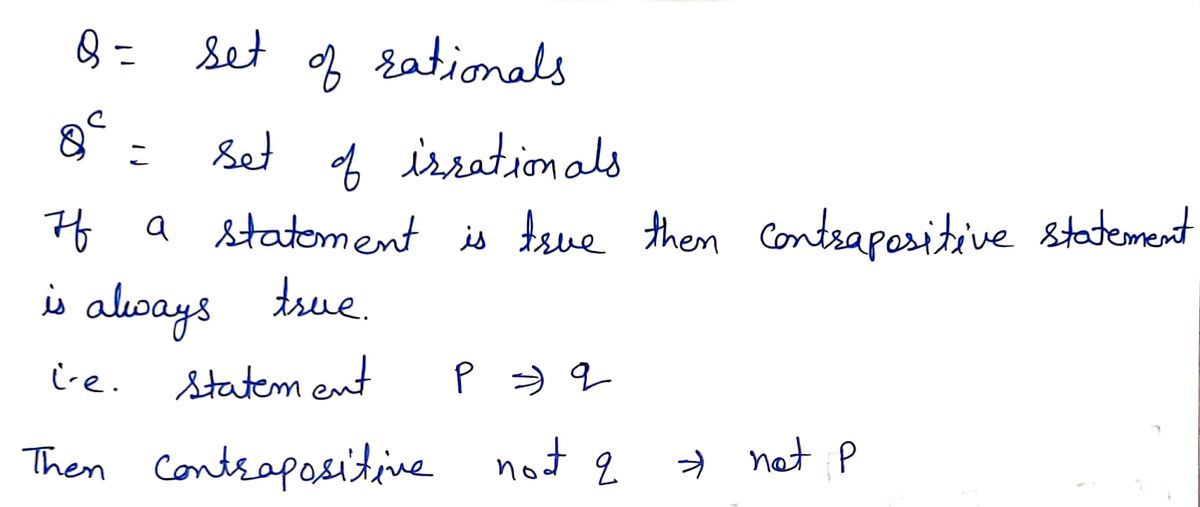 Q = set of rationals
Qᶜ = set of irrationals
If a statement is true then contrapositive statement
is always true.
i.e. statement P ⇒ q
Then contrapositive not q ⇒ not P